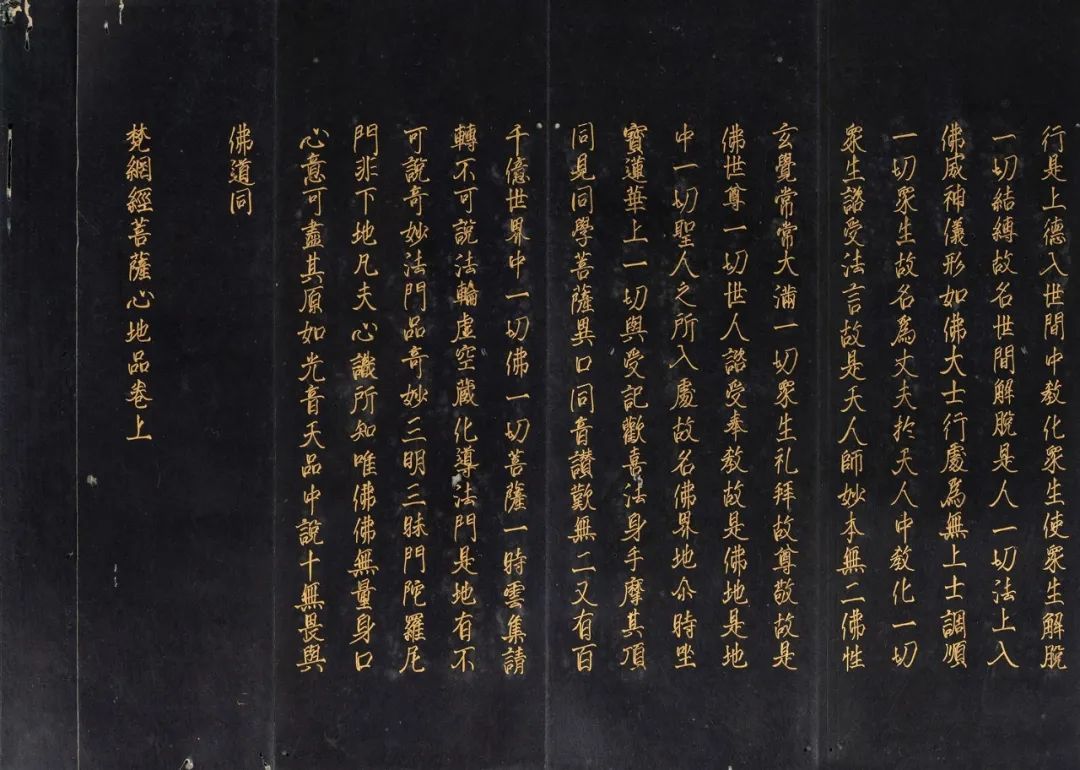 行是上德入世間中教化眾生使眾生解脫
一切結縛故名世間解脫是人一切法上入
佛威神儀形如佛大士行處為無上士調順
一切眾生故名為丈夫於天人中教化一切
眾生諮受法言故是天人師妙本無二佛性
玄覺常常大滿一切眾生礼拜故尊敬故是
佛世尊一切世人諮受奉教故是佛地是地
中一切聖人之所入處故名佛界地尒時坐
寶蓮華上一切與受記歡喜法身手摩其頂
同見同學菩薩異口同音讚歎無二又有百
千億世界中一切佛一切菩薩一時雲集請
轉不可說法輪虛空藏化導法門是地有不
可說奇妙法門品奇妙三明三昧門陀羅尼
門非下地凡夫心識所知唯佛佛無量身口
心意可盡其原如光音天品中說十無畏與
佛道同
梵網經菩薩心地品卷上